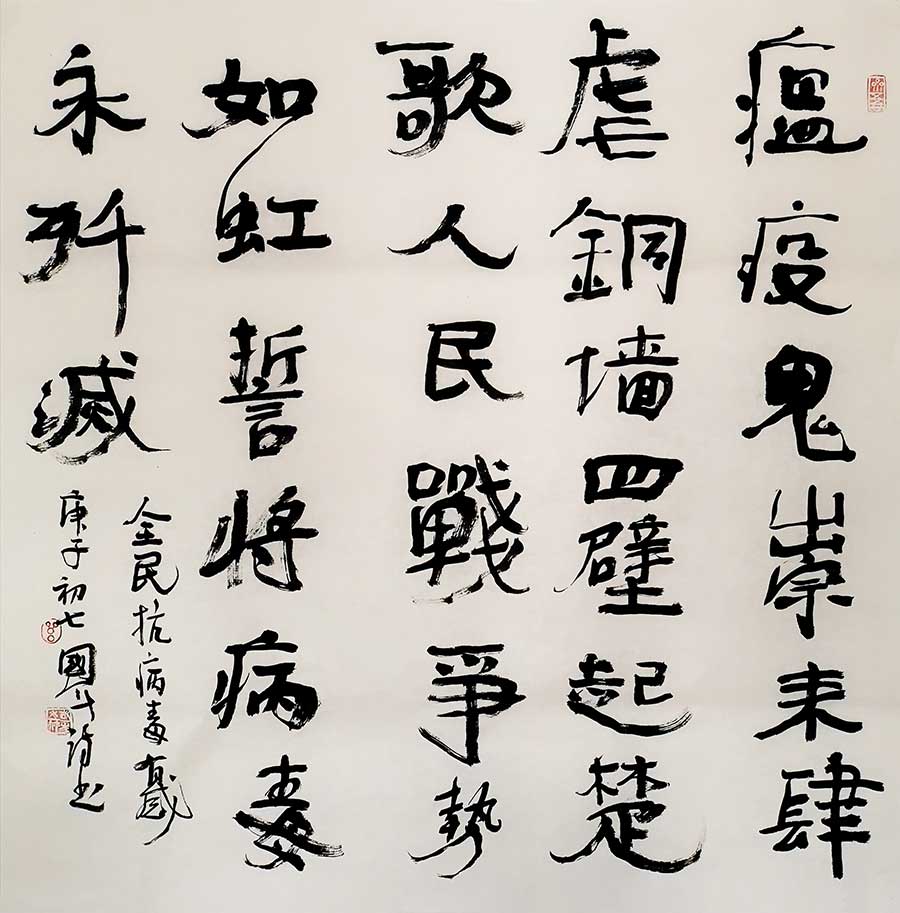 瘟疫鬼崇来肆
虐銅墙四壁起楚
歌人民戰爭勢
如虹誓将病毒
永歼滅
全民抗病毒有感
庚子初七國诗书